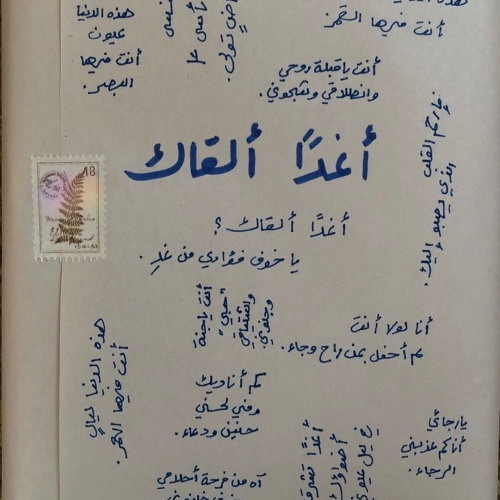 هذه الدنيا
أنت فيها القمر
هذه الدنيا
عيون
أنت فيها
البصر.
أنت يا قبلة روحي
وانطلاقي وشجوني.
فارحم القلب
الذي يصبو إليك.
أغدًا ألقاك
أغدًا ألقاك؟
يا خوف فؤادي من غدِ.
أنت يا جنة
حبي
واشتياقي
وجنوني
أنا لولا أنت
لم أحفل بمن راح وجاء.
هذه الدنيا ليالٍ
أنت فيها العمر.
كم أناديك
وفي لحني
حنين ودعاء.
يا رجائي
أنا كم عذبني
الرجاء.
أغدًا تشرق
أضواؤك
في ليل عيوني
آه من فرحة أحلامي
18